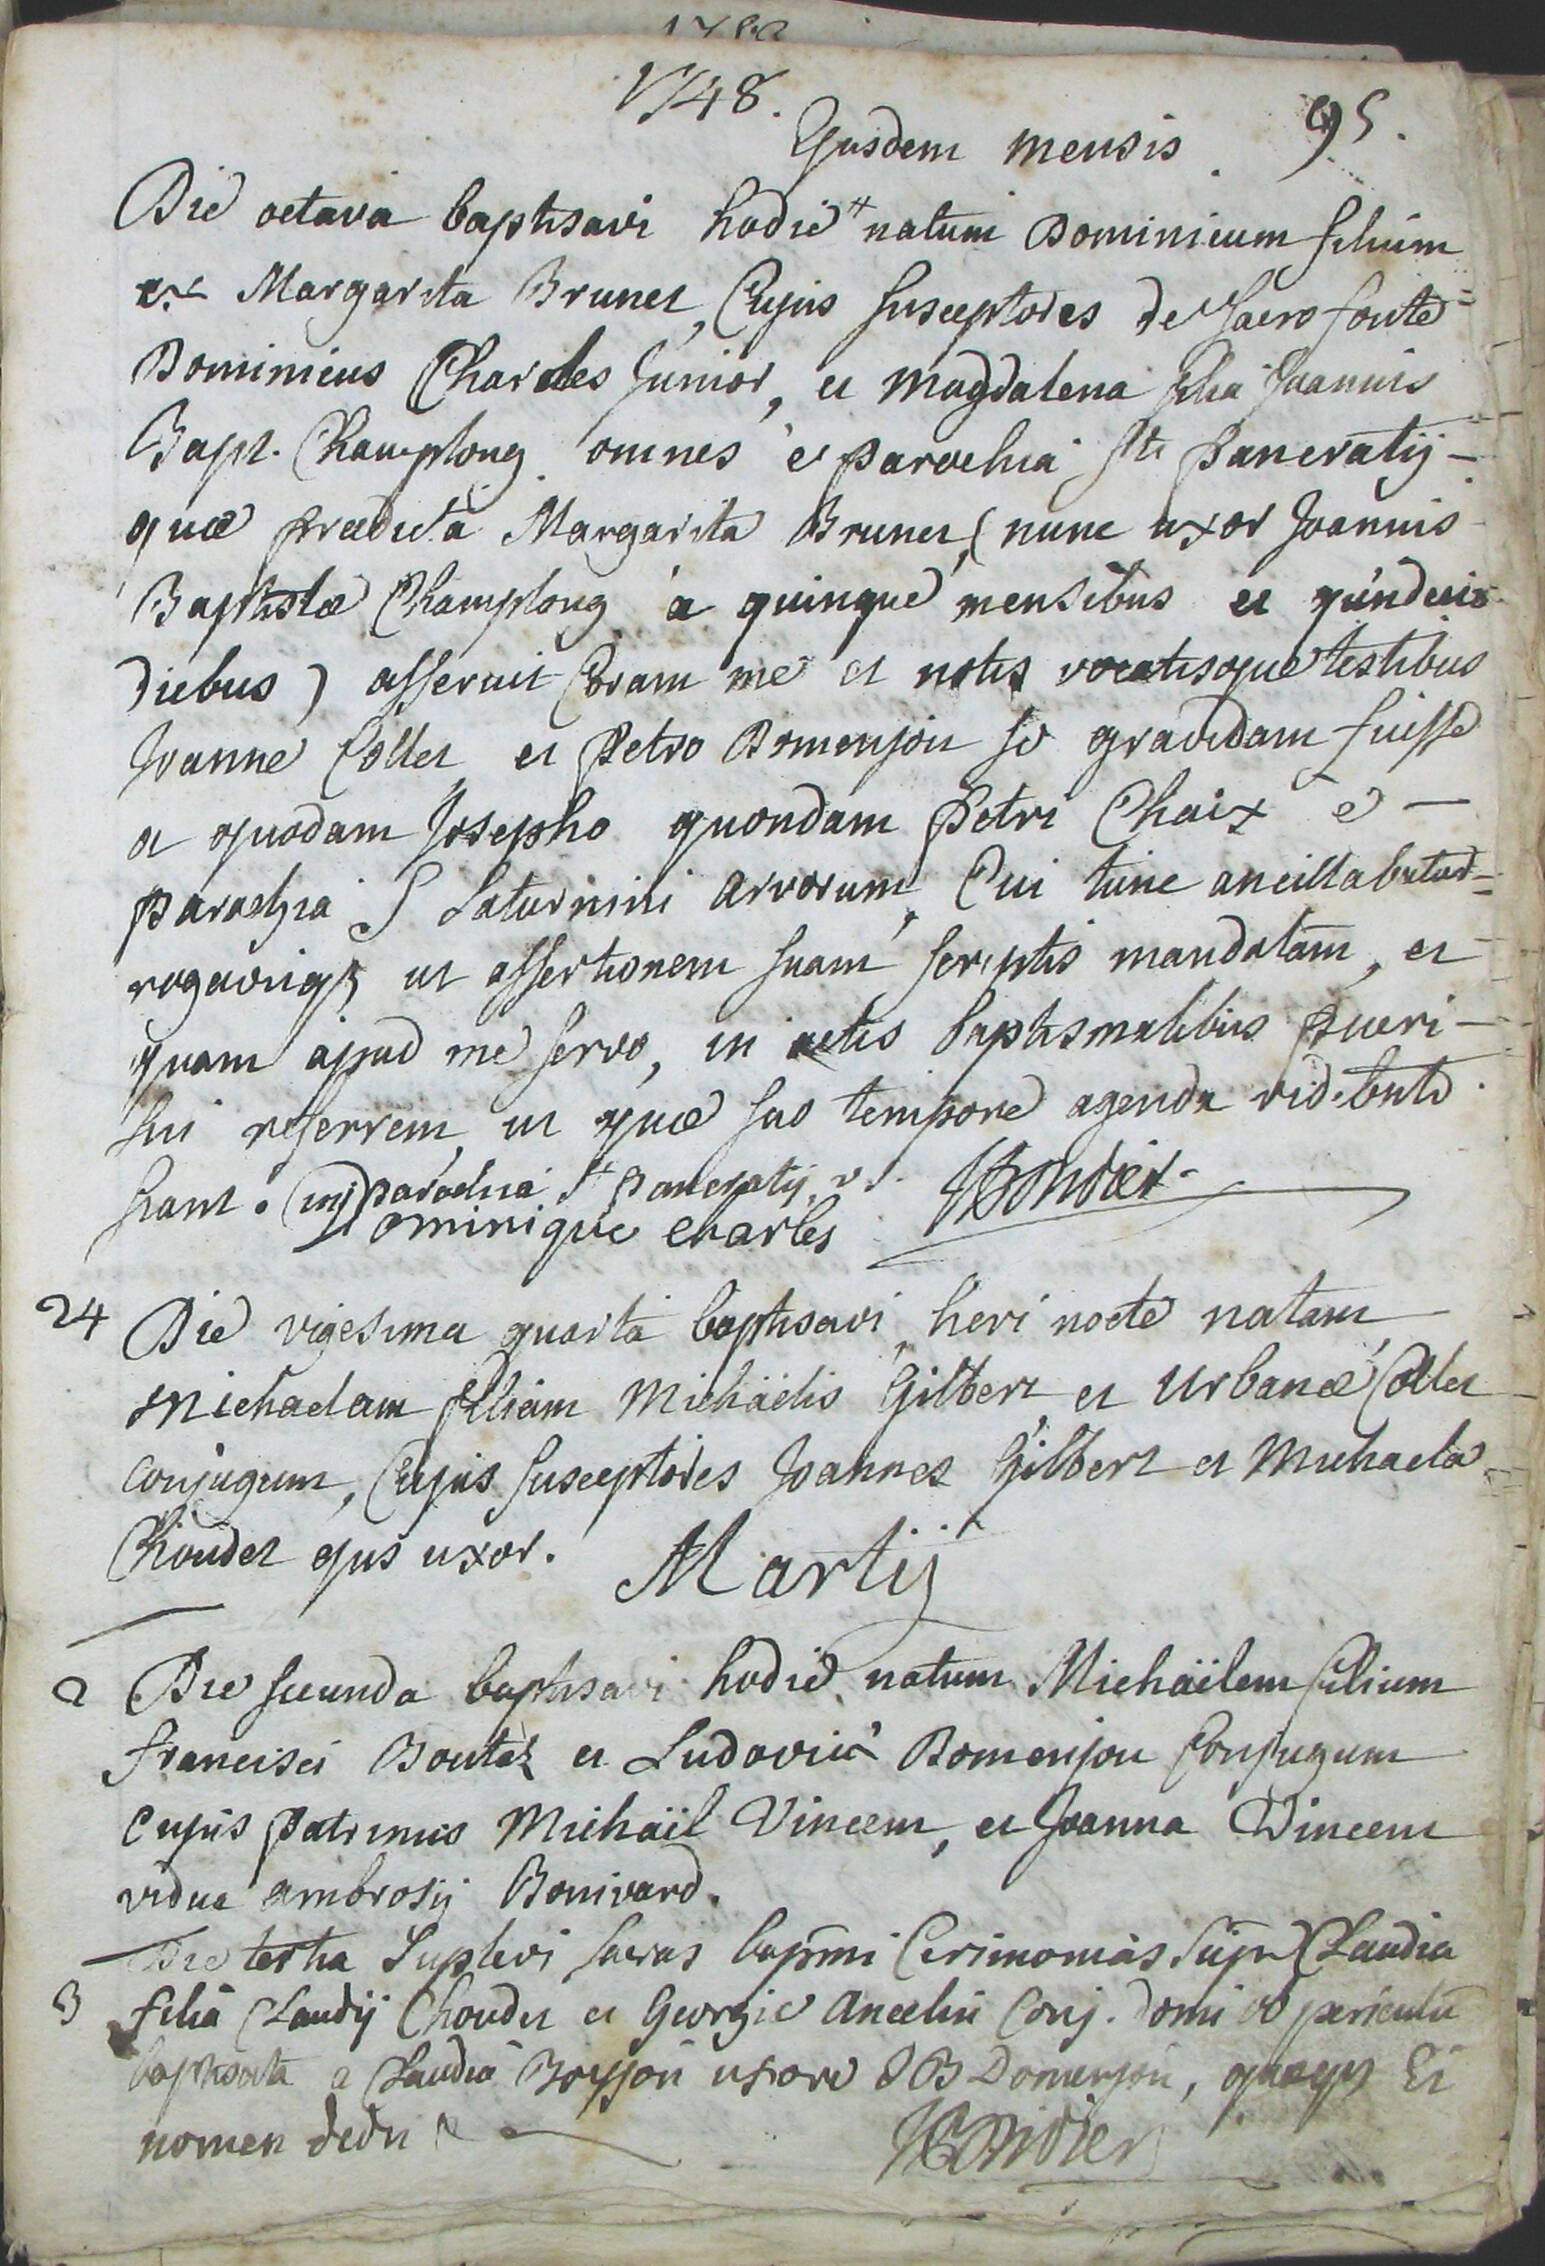 1748.
Ejusdem mensis. 95.
Die octava baptisavi hodie # natum Dominicum filium
ex Margarita Brunet, Cujus susceptores de sacro fonte
Dominicus Charles junior, et Magdalena filia Joannis
Bapt. Champlong. omnes e parochia Sti Pancratij -
quæ prædicta Margarita Brunet, (nunc uxor Joannis
Baptistæ Champlong a quinque mensibus et
diebus) asseruit Coram me et notis vocatisque testibus
Joanne Collet et Petro Domenjon se gravidam fuisse
a quodam Josepho quondam Petri Chaix e -
parochia S Saturnini arvorum, Cui tunc ancillabatur -
ut assertionem suam scriptis mandatam, et
quam apud me servo, in actis baptismalibus pueri -
sui referrem, ut quæ suo tempore agenda
fiant. parochia St Pancratij
Dominique charles
24 Die vigesima quarta baptisavi heri nocte natam
Michaelam filiam Michäelis Gilbert et Urbanæ Collet
conjugum, Cujus susceptores Joannes Gilbert et Michaela
Choudet ejus uxor.
Martij
2 Die secunda baptisavi hodie natum Michäelem filium
francisci Boutaz et Ludovicæ Domenjon Conjugum
cujus patrinus Michäel Vincent, et Joanna Vincent
vidua ambrosij Bonivard.
Die tertia Suplevi sacras bapmi Cerimonias Supr Claudia
3 filia Claudij Choudet et Georgie Ancelin Conj. domi ob periculū
baptisata a Claudia uxore J B Domenjon, Ei
nomen dedit